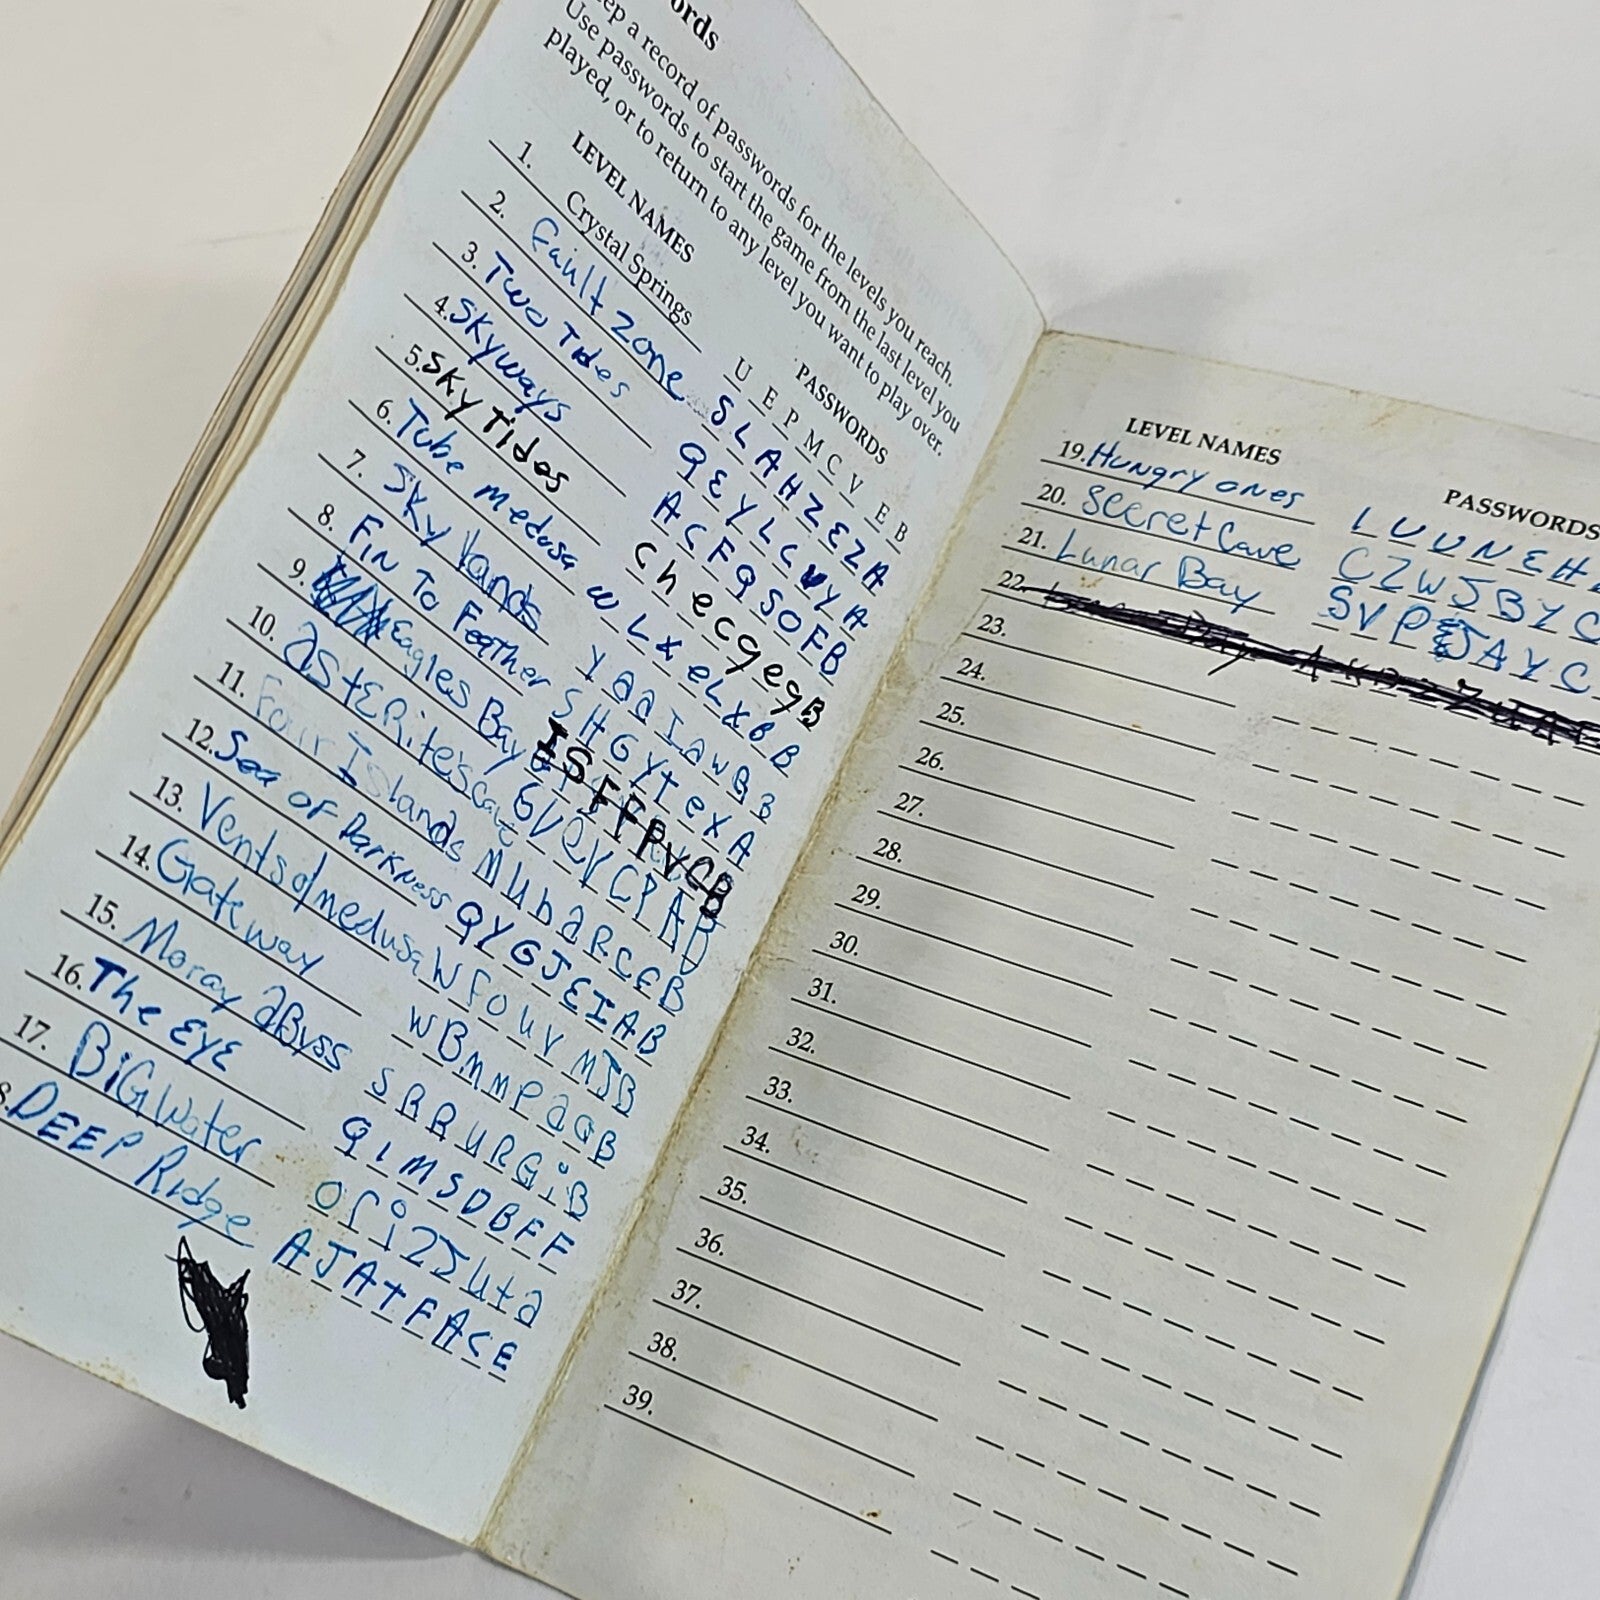 ords
ep a record of passwords for the levels you reach.
Use passwords to start the game from the last level you
played, or to return to any level you want to play over.
LEVEL NAMES PASSWORDS
1. Crystal Springs U E P M C V E B
2. Fault Zone S L A H Z E Z A
3. Two Tides Q E Y L C V Y A
4. Skyways A C F Q S O F B
5. Sky Tides C h e c g e g B
6. Tube medusa W L X e L X B B
7. Sky lands Y a a I a w B B
8. Fin To Feather S H G Y t e X A
9. Eagles Bay I S F F P V C B
10. aSTERite's cave G V Q V C P A B
11. Four Islands M U b a R C F B
12. Sea of Darkness Q Y G J E I A B
13. Vents of medusa W F O U V M J B
14. Gateway W B m m P a a B
15. Moray aByss S R R U R G i B
16. The EyE Q L M S D B F F
17. BiG Water O r i 2 Σ u t a
8. DEEP Ridge A J A T F A C E
LEVEL NAMES PASSWORDS
19. Hungry ones L U U N E H
20. Secret Cave C Z W S B Y C
21. Lunar Bay S V P J A Y C
22.
23.
24.
25.
26.
27.
28.
29.
30.
31.
32.
33.
34.
35.
36.
37.
38.
39.